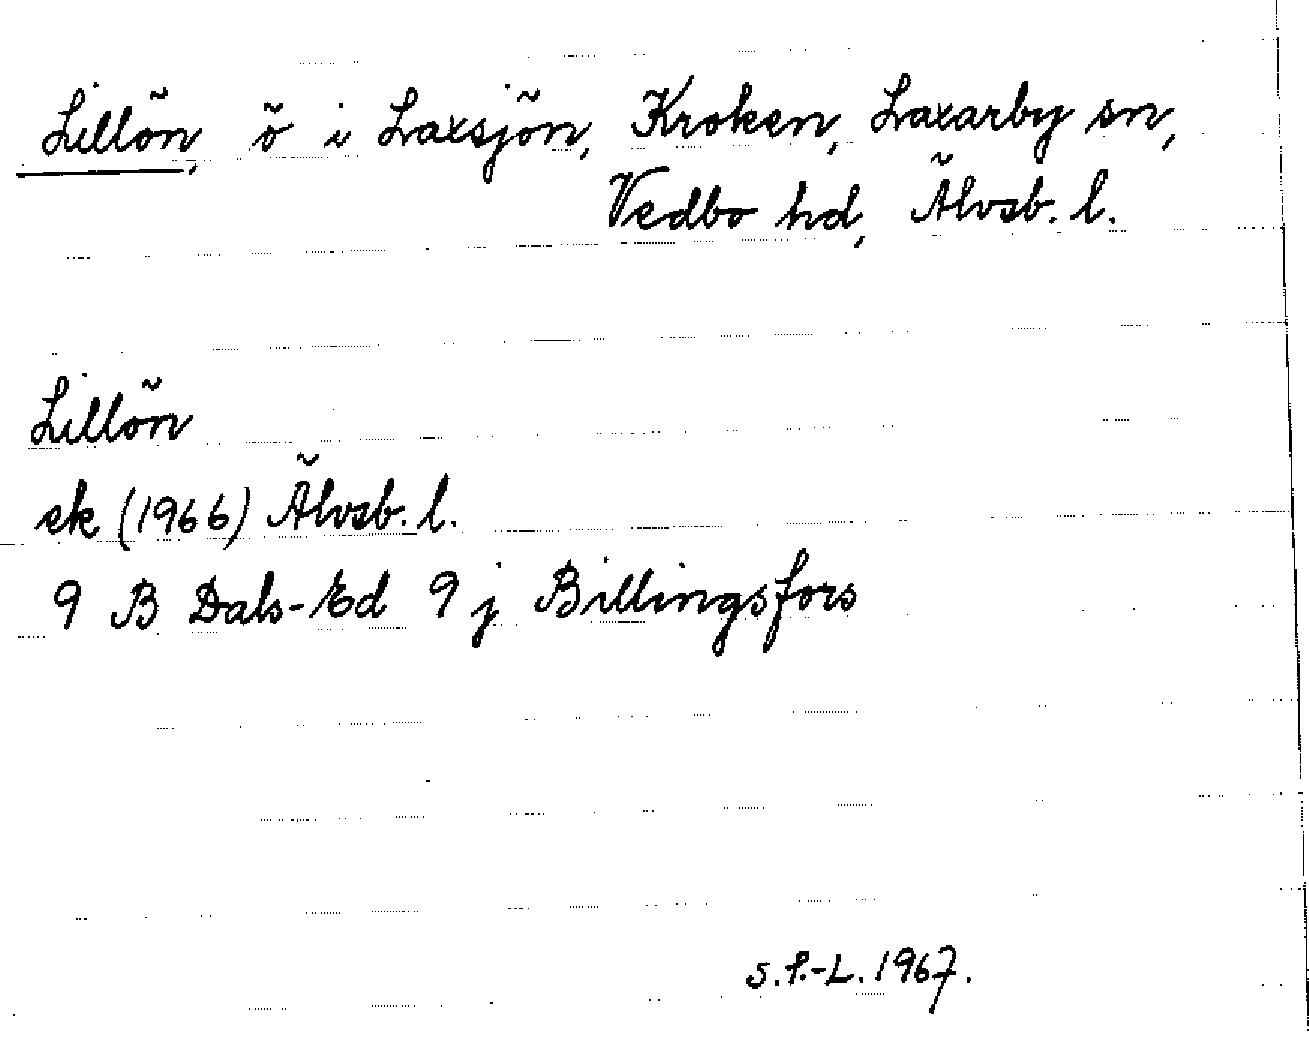 Lillön, ö i Laxsjön, Kroken, Laxarby sn,
Vedbo hd, Älvsb. l.
Lillön
ek (1966) Älvsb. l.
9 B Dals-Ed 9 j Billingsfors
S.P.-L. 1967.